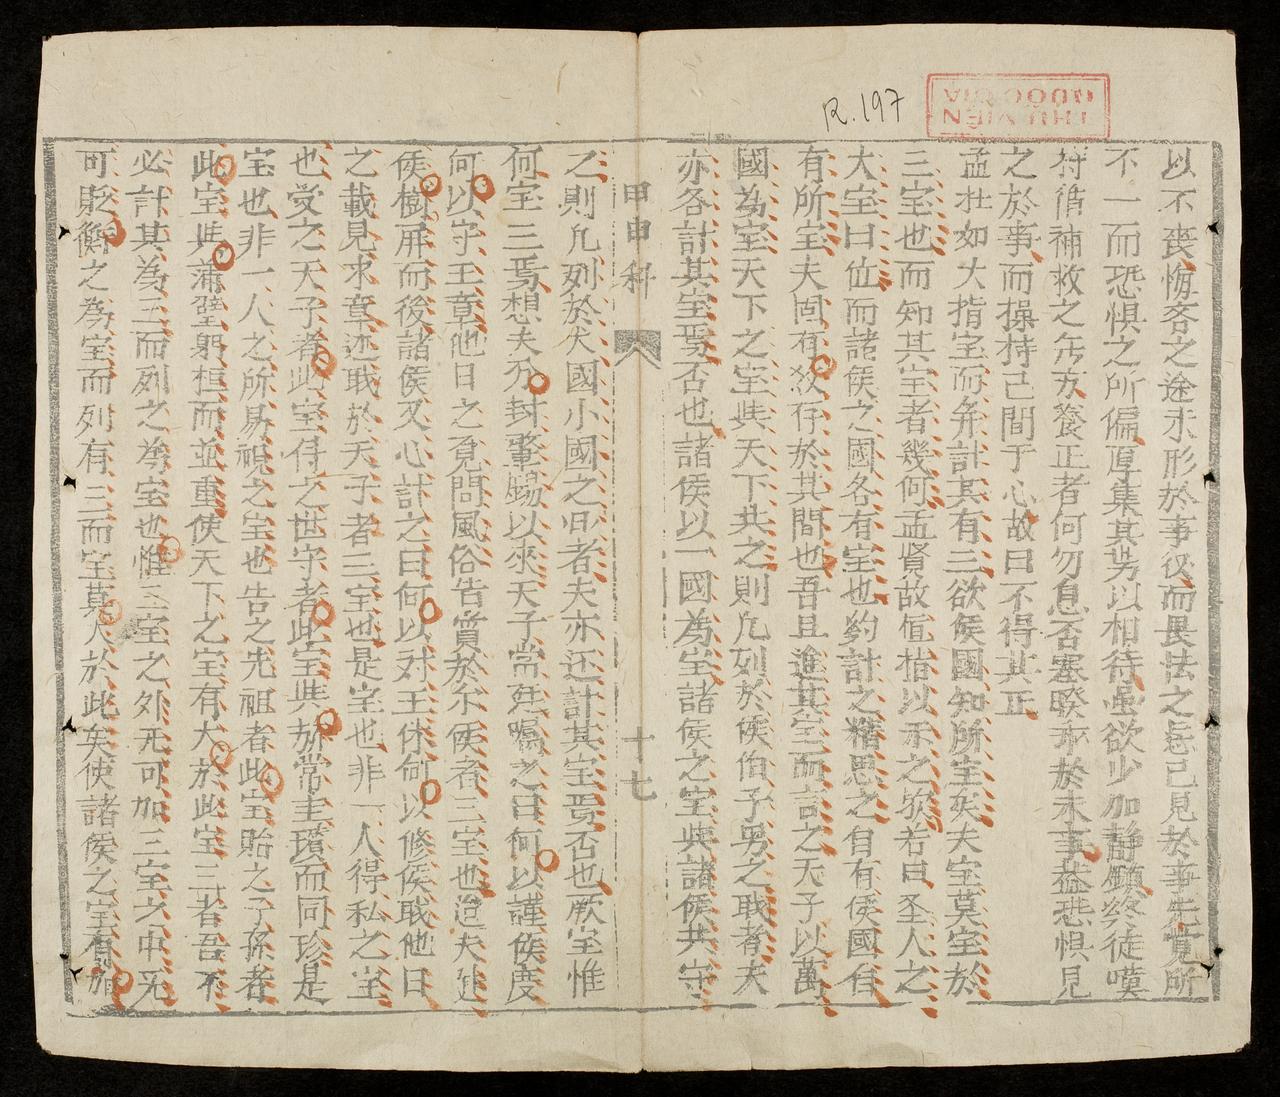 R.197
THƯ VIỆN
QUỐC GIA
以不喪悔吝之途未形於事後而畏法之忌已見於事先覚所
不一而恐惧之所偏厚集其势以相待虽欲少加静顧終徒嘆
持循補救之無方養正者何勿息否塞暌乖於未事益恐惧見
之於事而操持已間于心故曰不得其正
孟在如大指宝而并計其有三欲侯國知所宝矣夫宝莫宝於
三宝也而知其宝者幾何孟賢故值指以示之欤若曰圣人之
大宝曰位而諸侯之國各有宝也約計之精思之自有侯國自
有所宝夫固有孜存於其間也吾且進其宝而言之天子以萬
國為宝天下之宝与天下共之則凢列於侯伯子男之戢者夫
亦各計其宝焉否也諸侯以一國為宝諸侯之宝与諸侯共守
甲申科
十七
之則凢列於大國小國之中者夫亦还計其宝焉否也厥宝惟
何宝三焉想夫分封輦錫以來天子當廷嘱之曰何以謹侯度
何以守王章他日之覓問風俗告質於尔侯者三宝也迨夫建
侯樹屏而後諸侯又心計之曰何以对王休何以修侯戢他日
之載見求章述戢於天子者三宝也是宝也非一人得私之宝
也受之天子者此宝得之世守者此宝与旂常圭瓚而同珍是
宝也非一人之所易視之宝也告之先祖者此宝貽之子孫者
此宝与蒲璧躬桓而並重使天下之宝有大於此宝三者吾不
必計其為三而列之為宝也惟三宝之外无可加三宝之中无
可貶衡之為宝而列有三而宝莫大於此矣使諸侯之宝有加